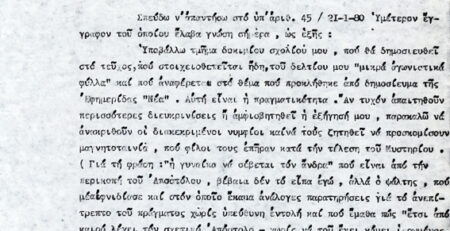 Σπεύδω ν'ἀπαντήσω στό ὑπ'ἀριθ. 45 / 21-1-80 Ὑμέτερον ἔγ-
γραφον τοῦ ὁποίου ἔλαβα γνώση σήμερα , ὡς ἑξῆς :
Ὑποβάλλω τμῆμα δοκιμίου σχολίου μου , πού θά δημοσιευθεῖ
στό τεῦχος,πού στοιχειοθετεῖται ἤδη,τοῦ δελτίου μου "μικρά ἀγωνιστικά
φύλλα" καί πού ἀναφέρεται στό θέμα πού προκλήθηκε ἀπό δημοσίευμα τῆς
Ἐφημερίδας "Νέα" . Αὐτή εἶναι ἡ πραγματικότητα . Ἄν τυχόν ἀπαιτηθοῦν
περισσότερες διευκρινίσεις ἤ ἀμφισβητηθεῖ ἡ ἐξήγησή μου , παρακαλῶ νά
ἀνακριθοῦν οἱ διακεκριμένοι νυμφίοι καίνά τούς ζητηθεῖ νά προσκομίσουν
μαγνητοταινία , πού φίλοι τους ἐπῆραν κατά τήν τέλεση τοῦ Μυστηρίου .
( Γιά τή φράση :"ἡ γυναίκα νά σέβεται τόν ἄνδρα" πού εἶναι ἀπό τήν
περικοπή τοῦ Ἀποστόλου , βέβαια δέν τό εἶπα ἐγώ , ἀλλά ὁ ψάλτης , πού
μέαἰφνιδίασε καί στόν ὁποῖον ἔκαμα ἀνάλογες παρατηρήσεις γιά τό ἀνεπί-
τρεπτο τοῦ πράγματος χωρίς ὑπεύθυνη ἐντολή καί πού ἔμαθα πώς "ἔτσι ἀπό
καιρό λέγει τόν σχετικό Ἀπόστολο - χωρίς νά τοῦ ἔχει κάμει